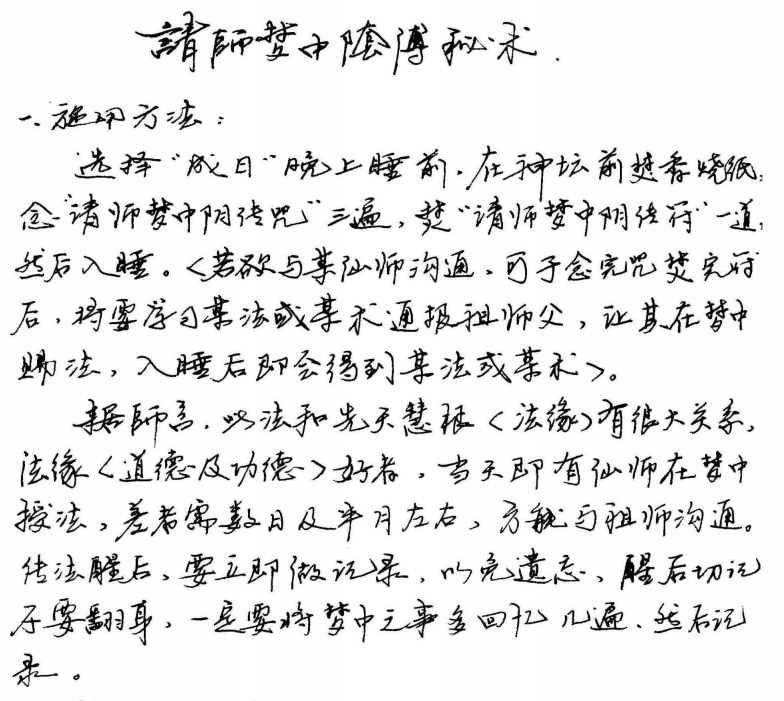 請師梦中陰傅秘术.
一.施用方法：
选择“成日”晚上睡前.在神坛前焚香烧纸,
念“请师梦中阴传咒”三遍,焚“请师梦中阴传符”一道,
然后入睡。<若欲与某仙师沟通、可于念完咒焚完符
后,将要学习某法或某术通报祖师父,让其在梦中
赐法,入睡后即会得到某法或某术>。
据師言.此法和先天慧根<法缘>有很大关系,
法缘<道德及功德>好者,当天即有仙师在梦中
授法,差者需数日及半月左右,方能与祖师沟通。
传法醒后、要立即做记录,以免遗忘、醒后切记
不要翻身、一定要将梦中之事多回忆几遍.然后记
录。